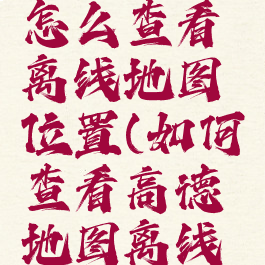 怎么查看
离线地图
位置(如何
查看高德
地图离线